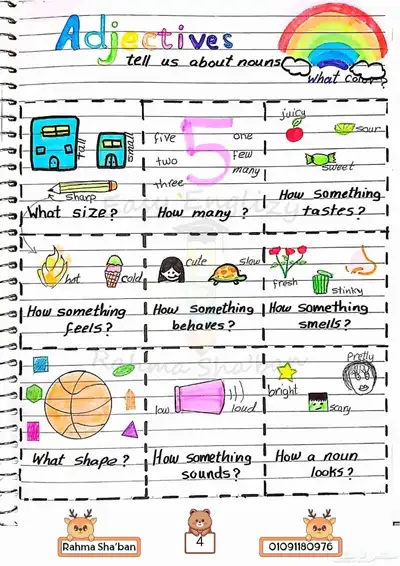 Adjectives
tell us about nouns
What color?
tall
small
sharp
What size?
5
five
one
two
few
many
three
How many?
juicy
sour
sweet
How something
tastes?
hot
cold
How something
feels?
cute
slow
How something
behaves?
fresh
stinky
How something
smells?
What shape?
low
loud
How something
sounds?
Pretty
bright
scary
How a noun
looks?
Rahma Sha'ban
Rahma Sha'ban
4
01091180976